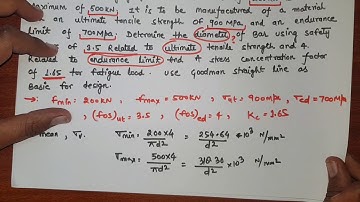 maximum of 500kN. It is to be manufactured of a material
an ultimate tensile strength of 900 MPa, and an endurance
limit of 700MPa. Determine the diameter of bar using safety
of 3.5 Related to ultimate tensile strength and 4
Related to endurance limit and A stress concentration factor
of 1.65 for fatigue load. Use Goodman straight line as
Basic for design.
→ fmin = 200kN , fmax = 500kN , σut = 900MPa , σed = 700MPa
, (fos)ut = 3.5 , (fos)ed = 4 , Kc = 1.65
mean , σv. σmin = 200×4 / πd² = 254.64 / d² ×10³ N/mm²
σmax = 500×4 / πd² = / d² ×10³ N/mm²